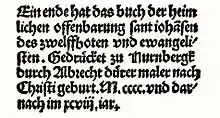 Ein ende hat das buch der heim
lichen offenbarung sant iohãsen
des zwelffboten vnd ewangeli-
sten. Gedrücket zu Nurnbergk
durch Albrecht dürer maler nach
Christi geburt. M. cccc. vnd dar-
nach im xcviij. iar.